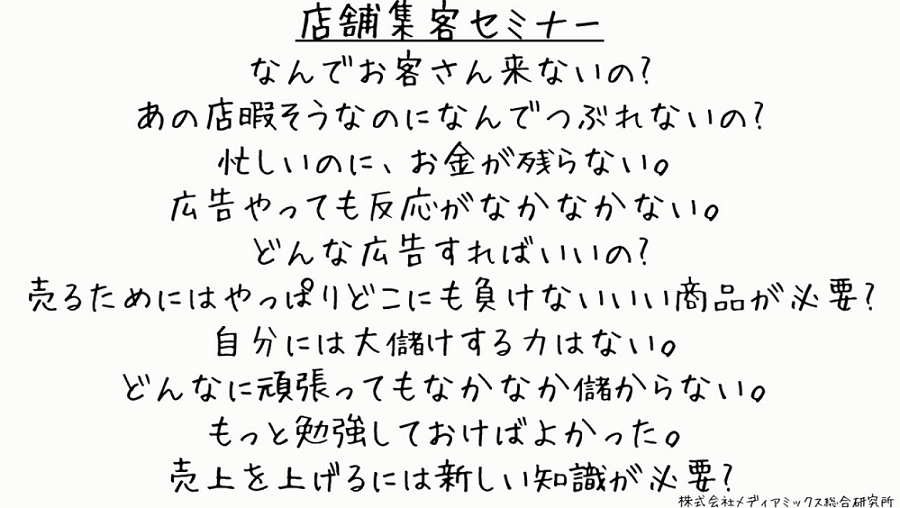 店舗集客セミナー
なんでお客さん来ないの?
あの店暇そうなのになんでつぶれないの?
忙しいのに、お金が残らない。
広告やっても反応がなかなかない。
どんな広告すればいいの?
売るためにはやっぱりどこにも負けないいい商品が必要?
自分には大儲けする力はない。
どんなに頑張ってもなかなか儲からない。
もっと勉強しておけばよかった。
売上を上げるには新しい知識が必要?
株式会社メディアミックス総合研究所